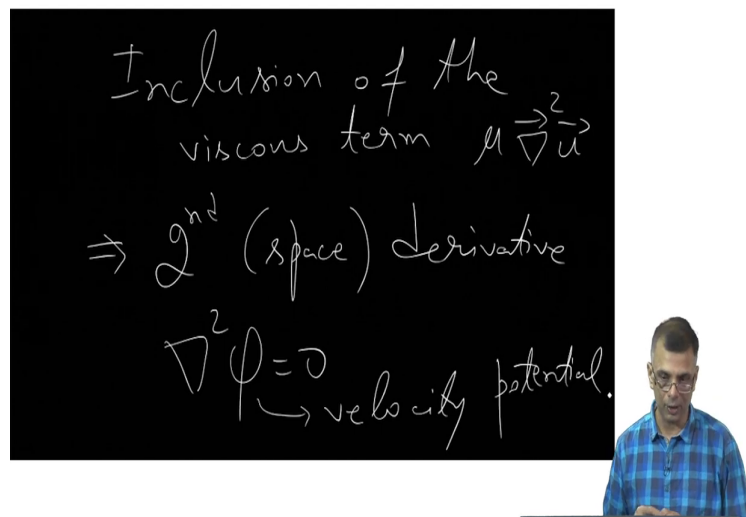 Inclusion of the
viscous term μ ∇⃗² u⃗
⇒ 2nd (space) derivative
∇²φ=0
↳ velocity potential.